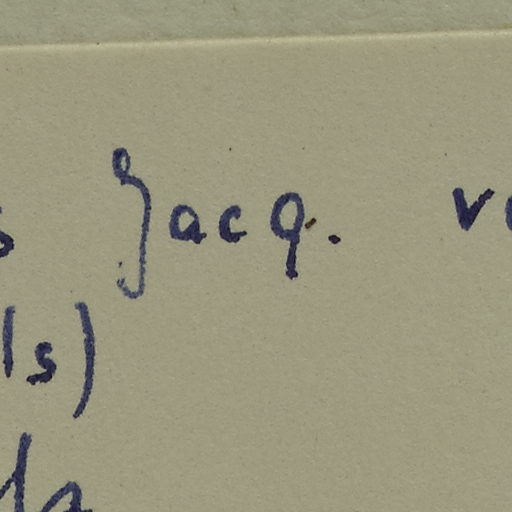 s Jacq. v
ls)